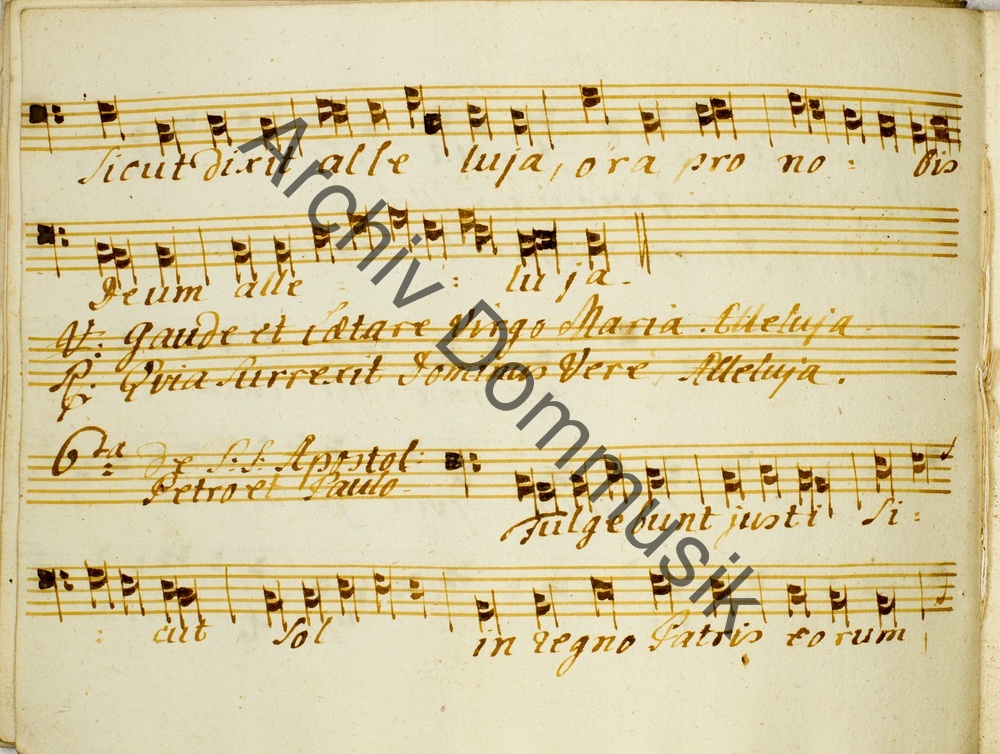 Sicut dixit alle luja, ora pro no: bis
Deum alle : luja.
V: Gaude et lætare Virgo Maria Alleluja.
R: Quia surrexit Dominus Vere Alleluja.
6ta de S:S: Apostol:
Petro et Paulo.
Fulgebunt justi Si:
: cut Sol in regno Patris eorum
Archiv Dommusik